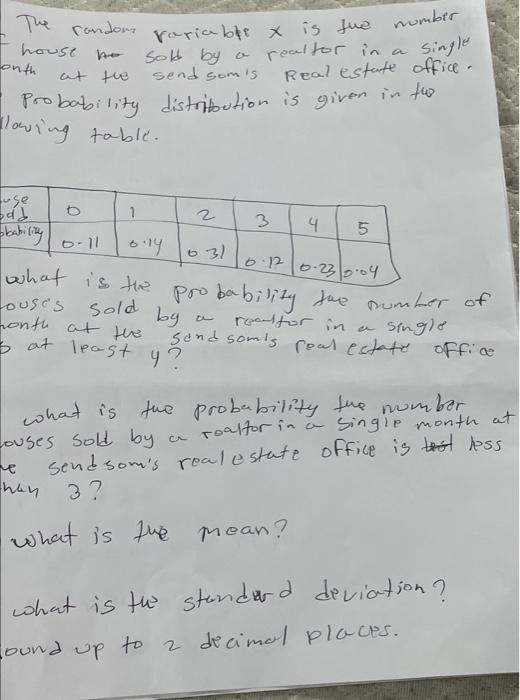 The random variable x is the number
house sold by a realtor in a single
onth at the sendsom's Real estate office.
Probability distribution is given in the
llowing table.
use
0 1 2 3 4 5
bability 0.11 0.14 0.31 0.12 0.23 0.04
what is the probability the number of
ouses sold by a realtor in a single
month at the sendsom's real estate office
at least 4?
what is the probability the number
ouses sold by a realtor in a single month at
e sendsom's real estate office is less
han 3?
what is the mean?
what is the standard deviation?
ound up to 2 decimal places.